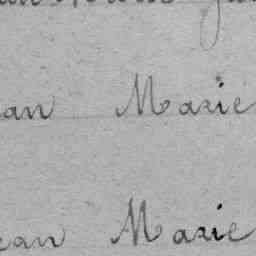 an Marie
ean Marie